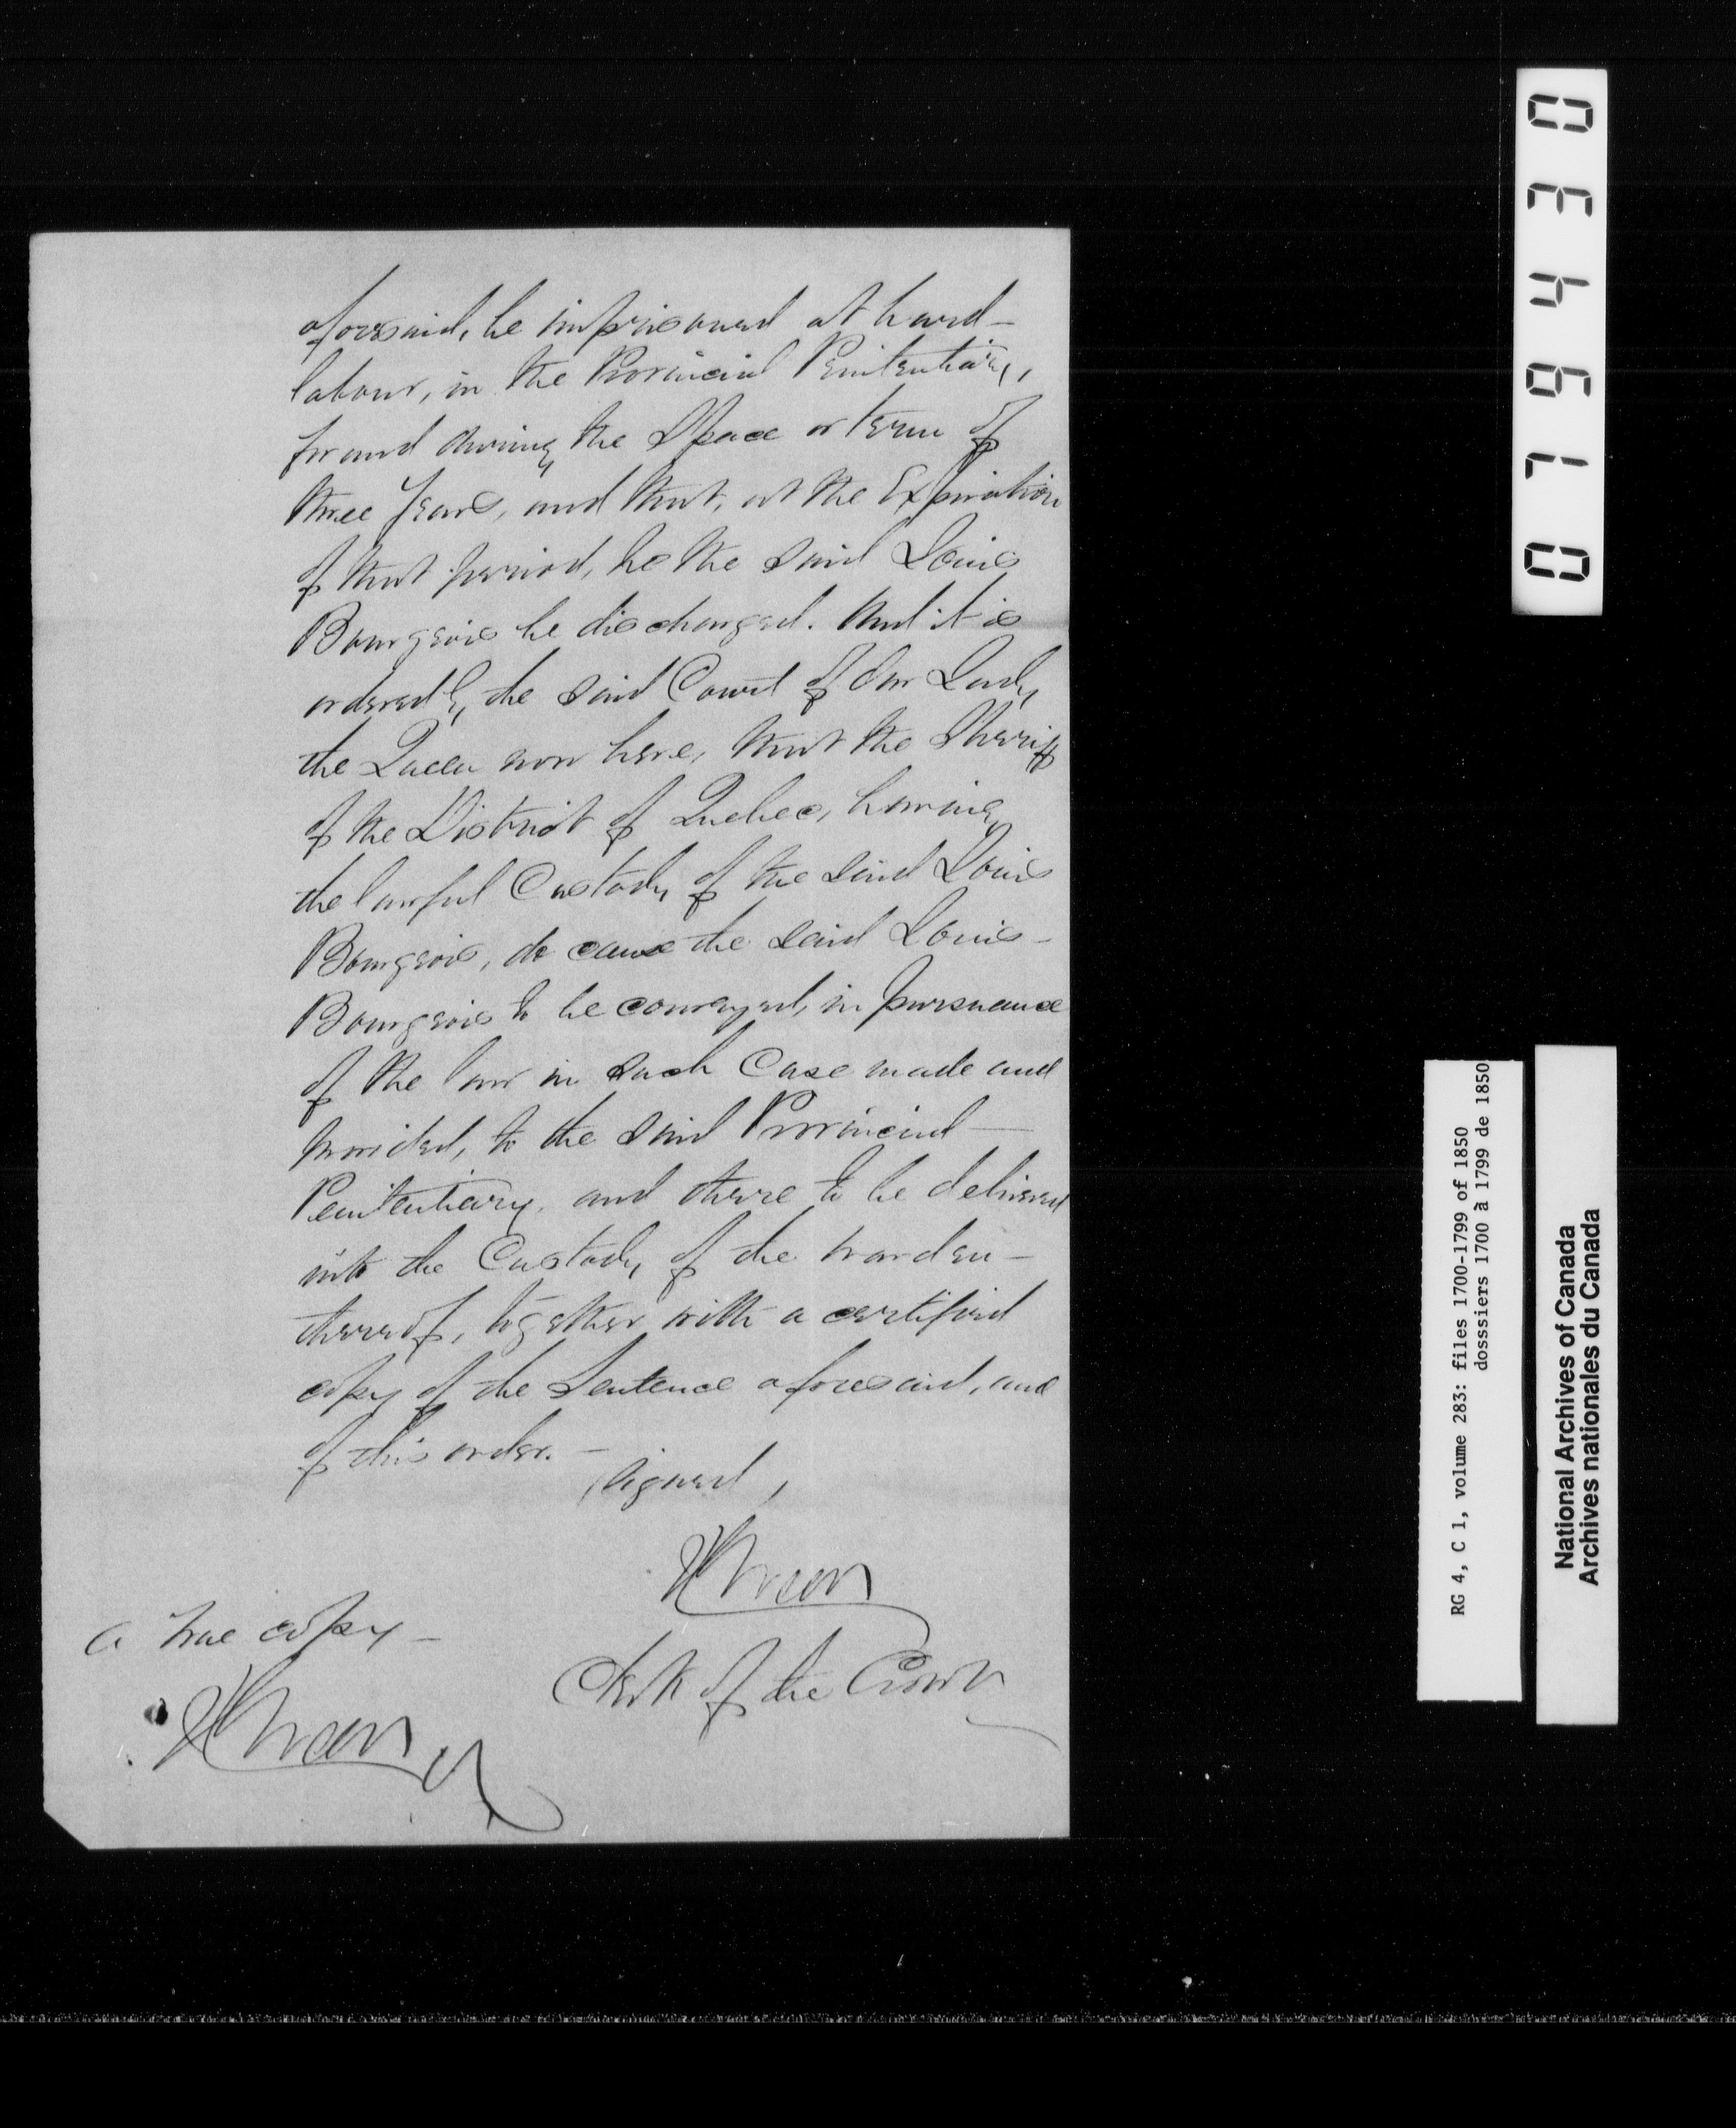 aforesaid, be imprisoned at hard-
labour, in the Provincial Penitentiary,
for and during the Space or term of
three Years, and that, at the Expiration
of that period, he the said Louis
Bourgeois be discharged. And it is
ordered by the said Court of Our Lady
the Queen now here, that the Sheriff
of the District of Quebec, having
the lawful Custody of the said Louis
Bourgeois, do cause the said Louis-
Bourgeois to be conveyed, in pursuance
of the law in such Case made and
provided, to the said Provincial-
Penitentiary, and there to be delivered
into the Custody of the warden-
thereof, together with a certified
copy of the Sentence aforesaid, and
of this order.-
(signed)
Clerk of the Crown
a true copy-
079430
RG 4, C 1, volume 283: files 1700-1799 of 1850
dosssiers 1700 à 1799 de 1850
National Archives of Canada
Archives nationales du Canada